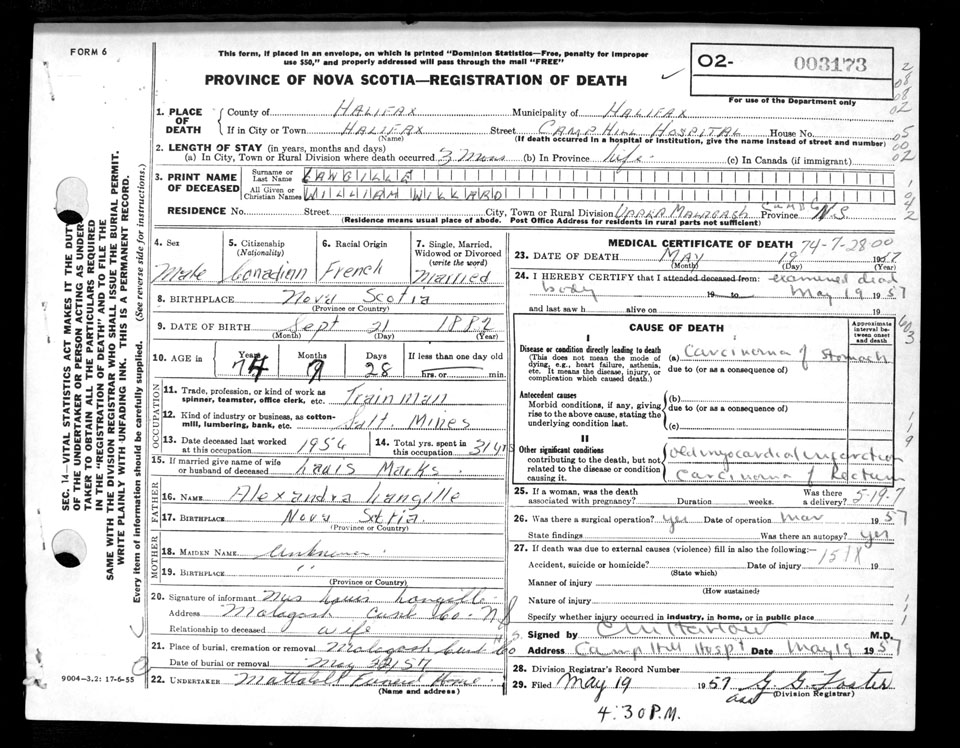 FORM 6
This form, if placed in an envelope, on which is printed "Dominion Statistics—Free, penalty for improper
use $50," and properly addressed will pass through the mail "FREE"
PROVINCE OF NOVA SCOTIA—REGISTRATION OF DEATH
O2- 003173
For use of the Department only
1. PLACE OF DEATH
County of HALIFAX Municipality of HALIFAX
If in City or Town HALIFAX Street CAMP HILL HOSPITAL House No.
(Name) (If death occurred in a hospital or institution, give the name instead of street and number)
2. LENGTH OF STAY (in years, months and days)
(a) In City, Town or Rural Division where death occurred 3 Mos (b) In Province life (c) In Canada (if immigrant)
3. PRINT NAME OF DECEASED
Surname or Last Name LANGILLE
All Given or Christian Names WILLIAM WILLARD
RESIDENCE No. Street City, Town or Rural Division UPPER MALAGASH Province N.S.
(Residence means usual place of abode. Post Office Address for residents in rural parts not sufficient)
4. Sex Male
5. Citizenship (Nationality) Canadian
6. Racial Origin French
7. Single, Married, Widowed or Divorced (write the word) Married
8. BIRTHPLACE Nova Scotia
(Province or Country)
9. DATE OF BIRTH Sept 21 1882
(Month) (Day) (Year)
10. AGE in Years 74 Months 7 Days 28 If less than one day old
hrs. or min.
OCCUPATION
11. Trade, profession, or kind of work as spinner, teamster, office clerk, etc. Train man
12. Kind of industry or business, as cotton-mill, lumbering, bank, etc. Salt Mines
13. Date deceased last worked at this occupation 1956
14. Total yrs. spent in this occupation 31 yrs
15. If married give name of wife or husband of deceased Marks
FATHER
16. NAME Langille
17. BIRTHPLACE Nova Scotia
(Province or Country)
MOTHER
18. MAIDEN NAME Unknown
19. BIRTHPLACE "
(Province or Country)
20. Signature of informant Mrs Louis Langille
Address Malagash Cumb Co. N S
Relationship to deceased wife
21. Place of burial, cremation or removal Malagash Cumb Co
Date of burial or removal May 57
22. UNDERTAKER Mattatall Funeral Home
(Name and address)
9004—3.2: 17-6-55
SEC. 14—VITAL STATISTICS ACT MAKES IT THE DUTY
OF THE UNDERTAKER OR PERSON ACTING AS UNDER-
TAKER TO OBTAIN ALL THE PARTICULARS REQUIRED
IN THE "REGISTRATION OF DEATH" AND TO FILE THE
SAME WITH THE DIVISION REGISTRAR WHO SHALL ISSUE THE BURIAL PERMIT.
WRITE PLAINLY WITH UNFADING INK. THIS IS A PERMANENT RECORD.
Every item of information should be carefully supplied. (See reverse side for instructions.)
MEDICAL CERTIFICATE OF DEATH 74-7-28-00
23. DATE OF DEATH MAY 19 1957
(Month) (Day) (Year)
24. I HEREBY CERTIFY that I attended deceased from: examined dead
body 19 to May 19 1957
and last saw h alive on 19
CAUSE OF DEATH
Approximate interval between onset and death
I
Disease or condition directly leading to death (a) Carcinoma of Stomach
(This does not mean the mode of dying, e.g., heart failure, asthenia, etc. It means the disease, injury, or complication which caused death.)
due to (or as a consequence of)
Antecedent causes
Morbid conditions, if any, giving rise to the above cause, stating the underlying condition last.
(b)
due to (or as a consequence of)
(c)
II
Other significant conditions
contributing to the death, but not related to the disease or condition causing it.
Old myocardial infarction
Carcinoma of Rectum
25. If a woman, was the death associated with pregnancy? Duration weeks. Was there a delivery? 5-19-7
26. Was there a surgical operation? yes Date of operation Mar 1957
State findings Was there an autopsy? yes
27. If death was due to external causes (violence) fill in also the following:— 151X
Accident, suicide or homicide? Date of injury 19
(State which)
Manner of injury
(How sustained)
Nature of injury
Specify whether injury occurred in industry, in home, or in public place
Signed by M.D.
Address Camp Hill Hospt Date May 19 1957
28. Division Registrar's Record Number
29. Filed May 19 1957 G. G. Foster
(Division Registrar)
4:30 P.M.